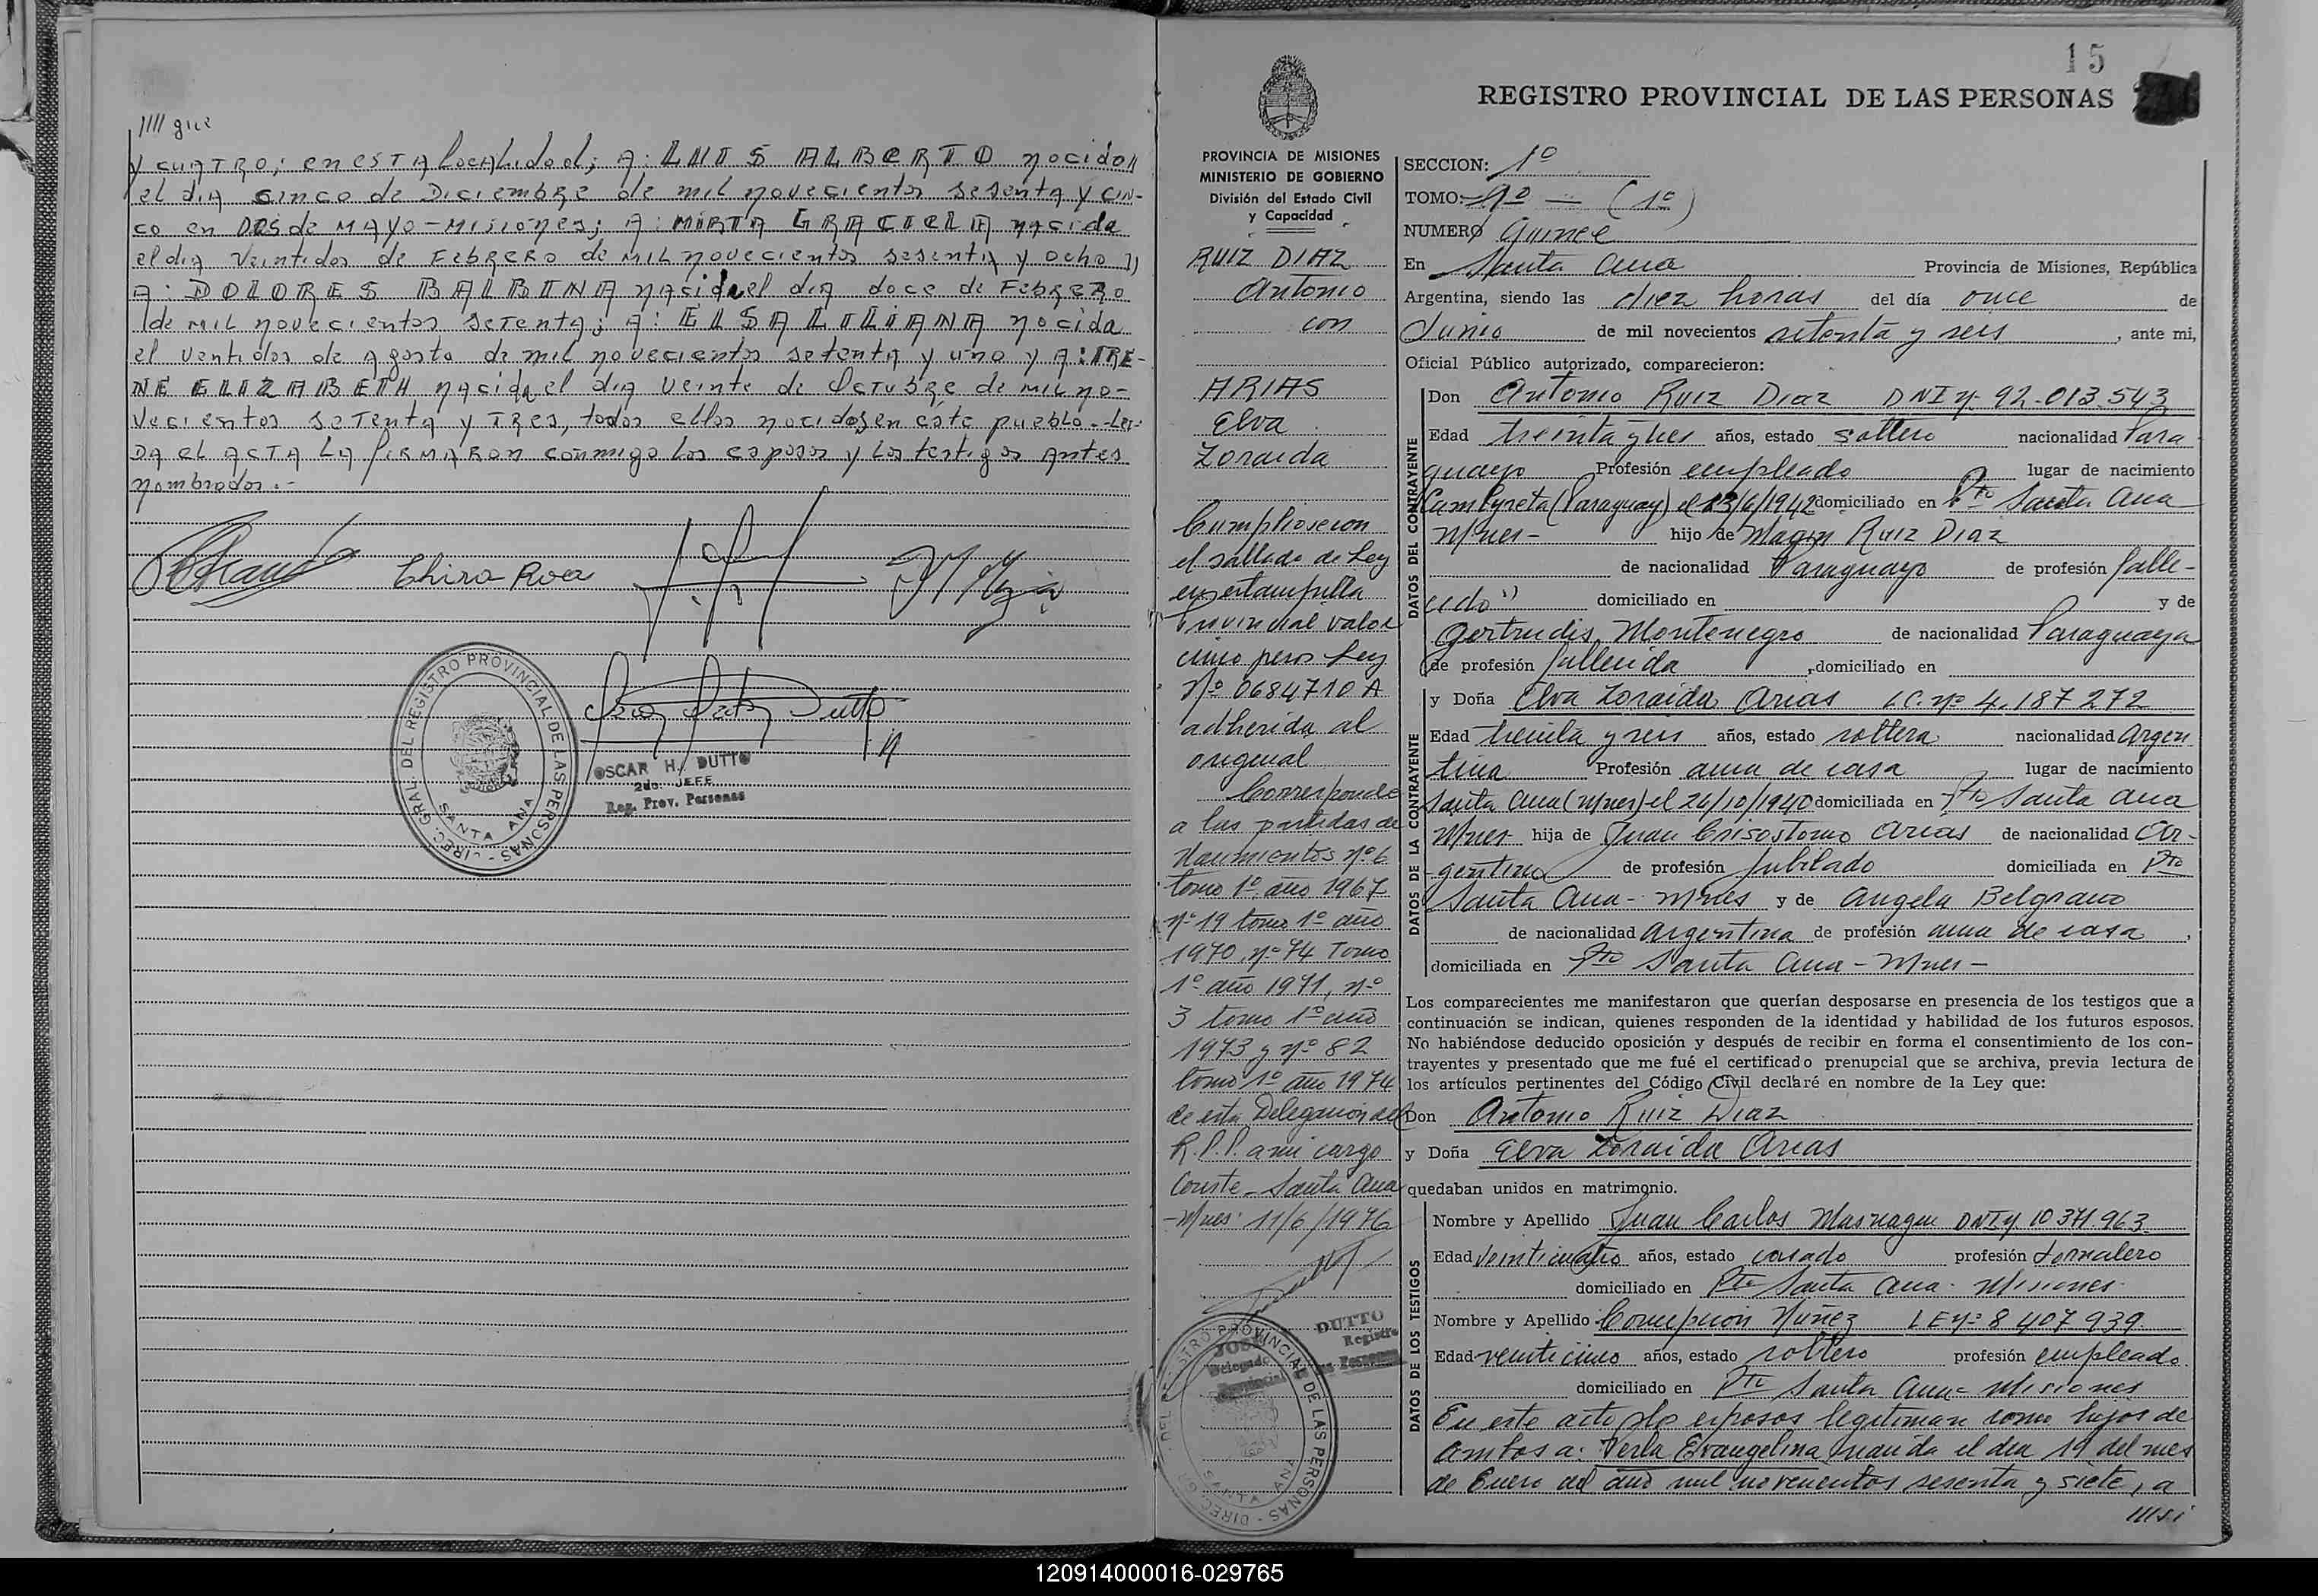 //// que
y cuatro; en esta localidad; A: LUIS ALBERTO nacido//
el dia cinco de Diciembre de mil novecientos sesenta y cin-
co en Dos de Mayo-Misiones; A: MIRTA GRACIELA nacida
el dia veintidos de Febrero de mil novecientos sesenta y ocho //
A: DOLORES BALBINA nacida el dia doce de Febrero
de mil novecientos setenta; A: ELSA LILIANA nacida
el ventidos de agosto de mil novecientos setenta y uno y A: IRE-
NE ELIZABETH nacida el dia veinte de Octubre de mil no-
vecientos setenta y tres, todos ellos nacidos en este pueblo.-Lei-
da el acta la firmaron conmigo los esposos y los testigos antes
nombrados.-
DIREC. GRAL. DEL REGISTRO PROVINCIAL DE LAS PERSONAS -
SANTA ANA
OSCAR H. DUTTO
2do. JEFE
Reg. Prov. Personas
15
REGISTRO PROVINCIAL DE LAS PERSONAS
PROVINCIA DE MISIONES
MINISTERIO DE GOBIERNO
División del Estado Civil
y Capacidad
RUIZ DIAZ
Antonio
con
ARIAS
Elva
Zoraida
Cumplioseron
el sallado de Ley
en estampilla
Provincial valor
cinco pesos Ley
Nº 0684710 A
adherida al
original
Corresponde
a las partidas de
Nacimientos nº 6
tomo 1º año 1967
nº 19 tomo 1º año
1970, nº 74 Tomo
1º año 1971, nº
3 tomo 1º año
1973 y nº 82
tomo 1º año 1974
de esta Delegación del
R.P.P. a mi cargo
Conste - Santa Ana
-Mnes- 11/6/1976
DUTTO
SECCION: 1º
TOMO: 1º — (1º)
NUMERO Quince
En Santa Ana Provincia de Misiones, República
Argentina, siendo las diez horas del día once de
Junio de mil novecientos setenta y seis, ante mi,
Oficial Público autorizado, comparecieron:
DATOS DEL CONTRAYENTE
Don Antonio Ruiz Diaz DNI nº 92.013.543
Edad treinta y tres años, estado soltero nacionalidad Para
guayo Profesión empleado lugar de nacimiento
Cambyreta (Paraguay) el 13/6/1942 domiciliado en Pto Santa Ana
Mnes- hijo de Magin Ruiz Diaz
de nacionalidad Paraguayo de profesión falle-
cido" domiciliado en y de
Gertrudis Montenegro de nacionalidad Paraguaya
de profesión fallecida, domiciliado en
DATOS DE LA CONTRAYENTE
y Doña Elva Zoraida Arias L.C. nº 4.187.272
Edad treinta y seis años, estado soltera nacionalidad Argen
tina Profesión ama de casa lugar de nacimiento
Santa Ana (Mnes) el 26/10/1940 domiciliada en Pto Santa Ana
Mnes- hija de Juan Crisostomo Arias de nacionalidad Ar-
gentino de profesión Jubilado domiciliada en Pto
Santa Ana - Mnes y de Angela Belgrano
de nacionalidad Argentina de profesión ama de casa,
domiciliada en Pto Santa Ana - Mnes -
Los comparecientes me manifestaron que querían desposarse en presencia de los testigos que a
continuación se indican, quienes responden de la identidad y habilidad de los futuros esposos.
No habiéndose deducido oposición y después de recibir en forma el consentimiento de los con-
trayentes y presentado que me fué el certificado prenupcial que se archiva, previa lectura de
los artículos pertinentes del Código Civil declaré en nombre de la Ley que:
Don Antonio Ruiz Diaz
y Doña Elva Zoraida Arias
quedaban unidos en matrimonio.
DATOS DE LOS TESTIGOS
Nombre y Apellido Juan Carlos DNI nº 10 371.963
Edad veinticuatro años, estado casado profesión Jornalero
domiciliado en Pto Santa Ana - Misiones-
Nombre y Apellido Concepción Nuñez LE nº 8 407 939
Edad veinticinco años, estado soltero profesión empleado.
domiciliado en Pto Santa Ana - Misiones
En este acto los esposos legitiman como hijos de
ambos a: Perla Evangelina nacida el dia 19 del mes
de Enero del año mil novecientos sesenta y siete, a
120914000016-029765